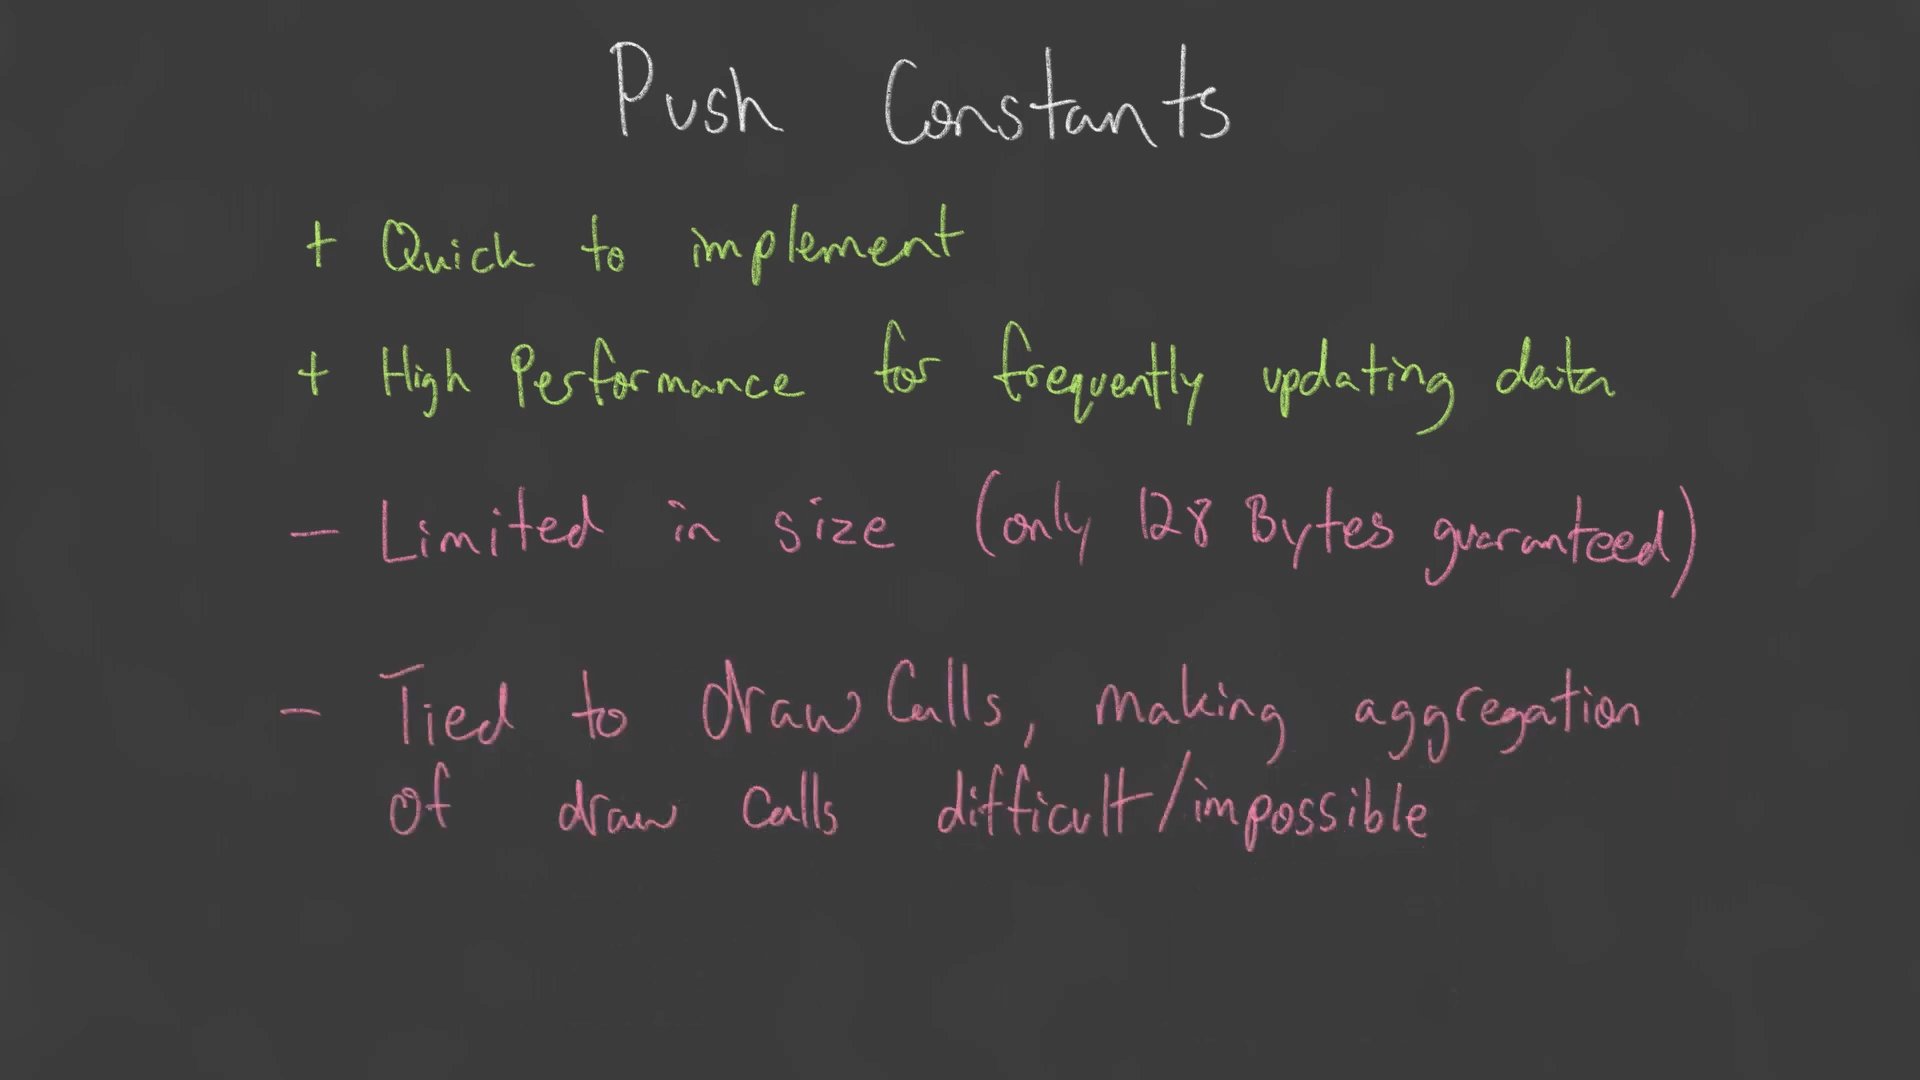 Push Constants
+ Quick to implement
+ High Performance for frequently updating data
- Limited in size (only 128 Bytes guaranteed)
- Tied to draw Calls, making aggregation
of draw calls difficult/impossible